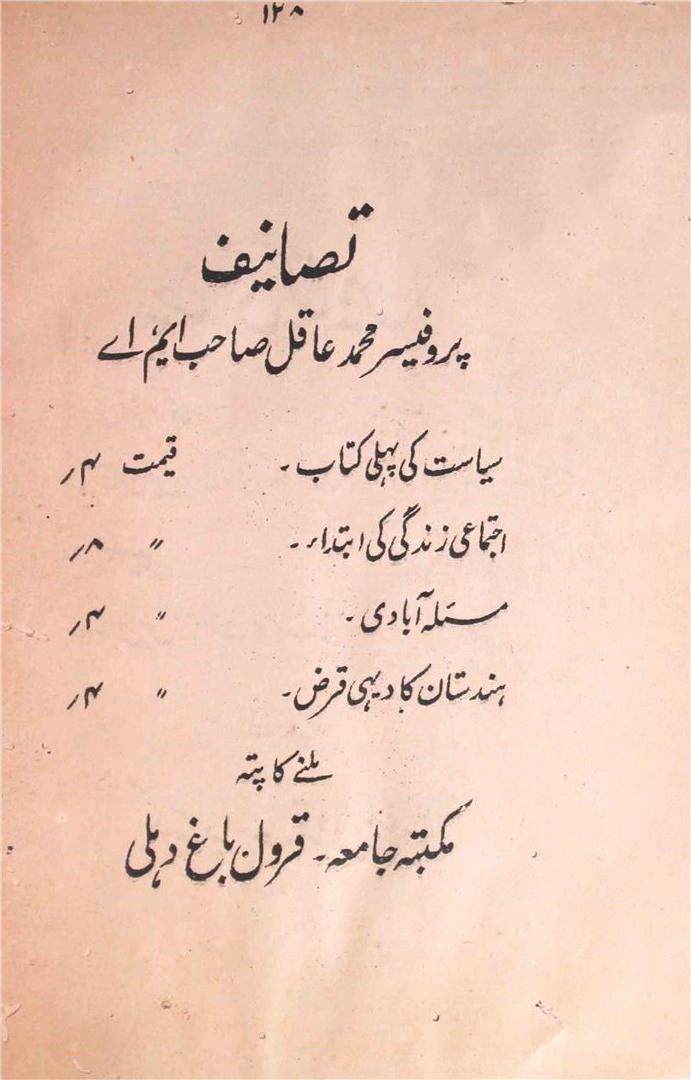 ۱۲۸
تصانیف
پروفیسر محمد عاقل صاحب ایم اے
سیاست کی پہلی کتاب۔ قیمت ۴ر
اجتماعی زندگی کی ابتداء۔ 〃 ۸ر
مسئلہ آبادی۔ 〃 ۴ر
ہندستان کا دیہی قرض۔ 〃 ۴ر
ملنے کا پتہ
مکتبہ جامعہ۔ قرول باغ دہلی